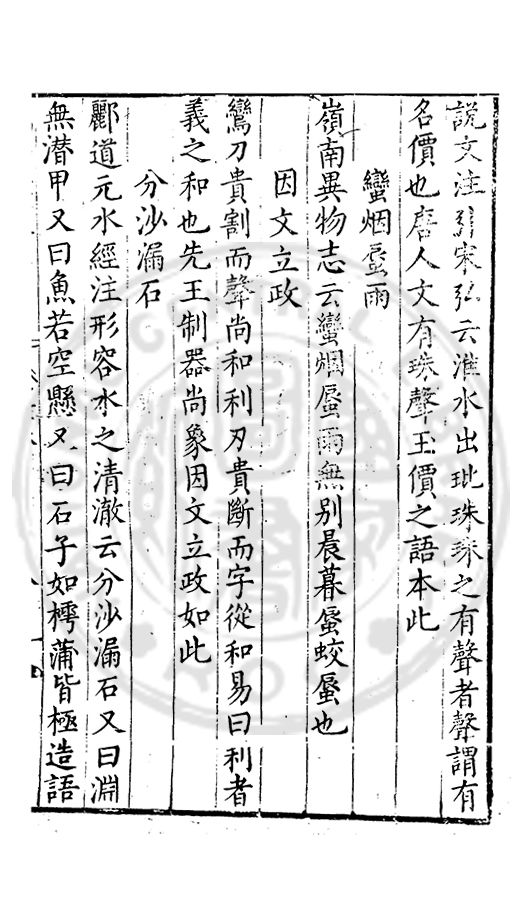 説文注引宋弘云淮水出玭珠珠之有聲者聲謂有
名價也唐人文有珠聲玉價之語本此
蠻烟蜃雨
嶺南異物志云蠻烟蜃雨無别晨暮蜃蛟蜃也
因文立政
鸞刀貴割而聲尚和利刃貴斷而字從和易曰利者
義之和也先王制器尚象因文立政如此
分沙漏石
酈道元水經注形容水之清澈云分沙漏石又曰淵
無潜甲又曰魚若空懸又曰石子如樗蒲皆極造語